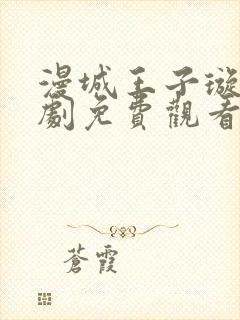 漫城王子璇
劇免費觀看
蒼霞